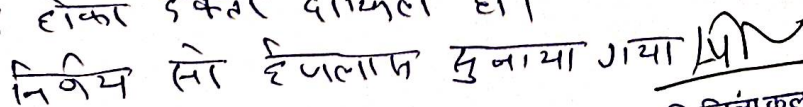 होकर दफ्तर दाखिल हो।
निर्णय सरे इजलास सुनाया गया